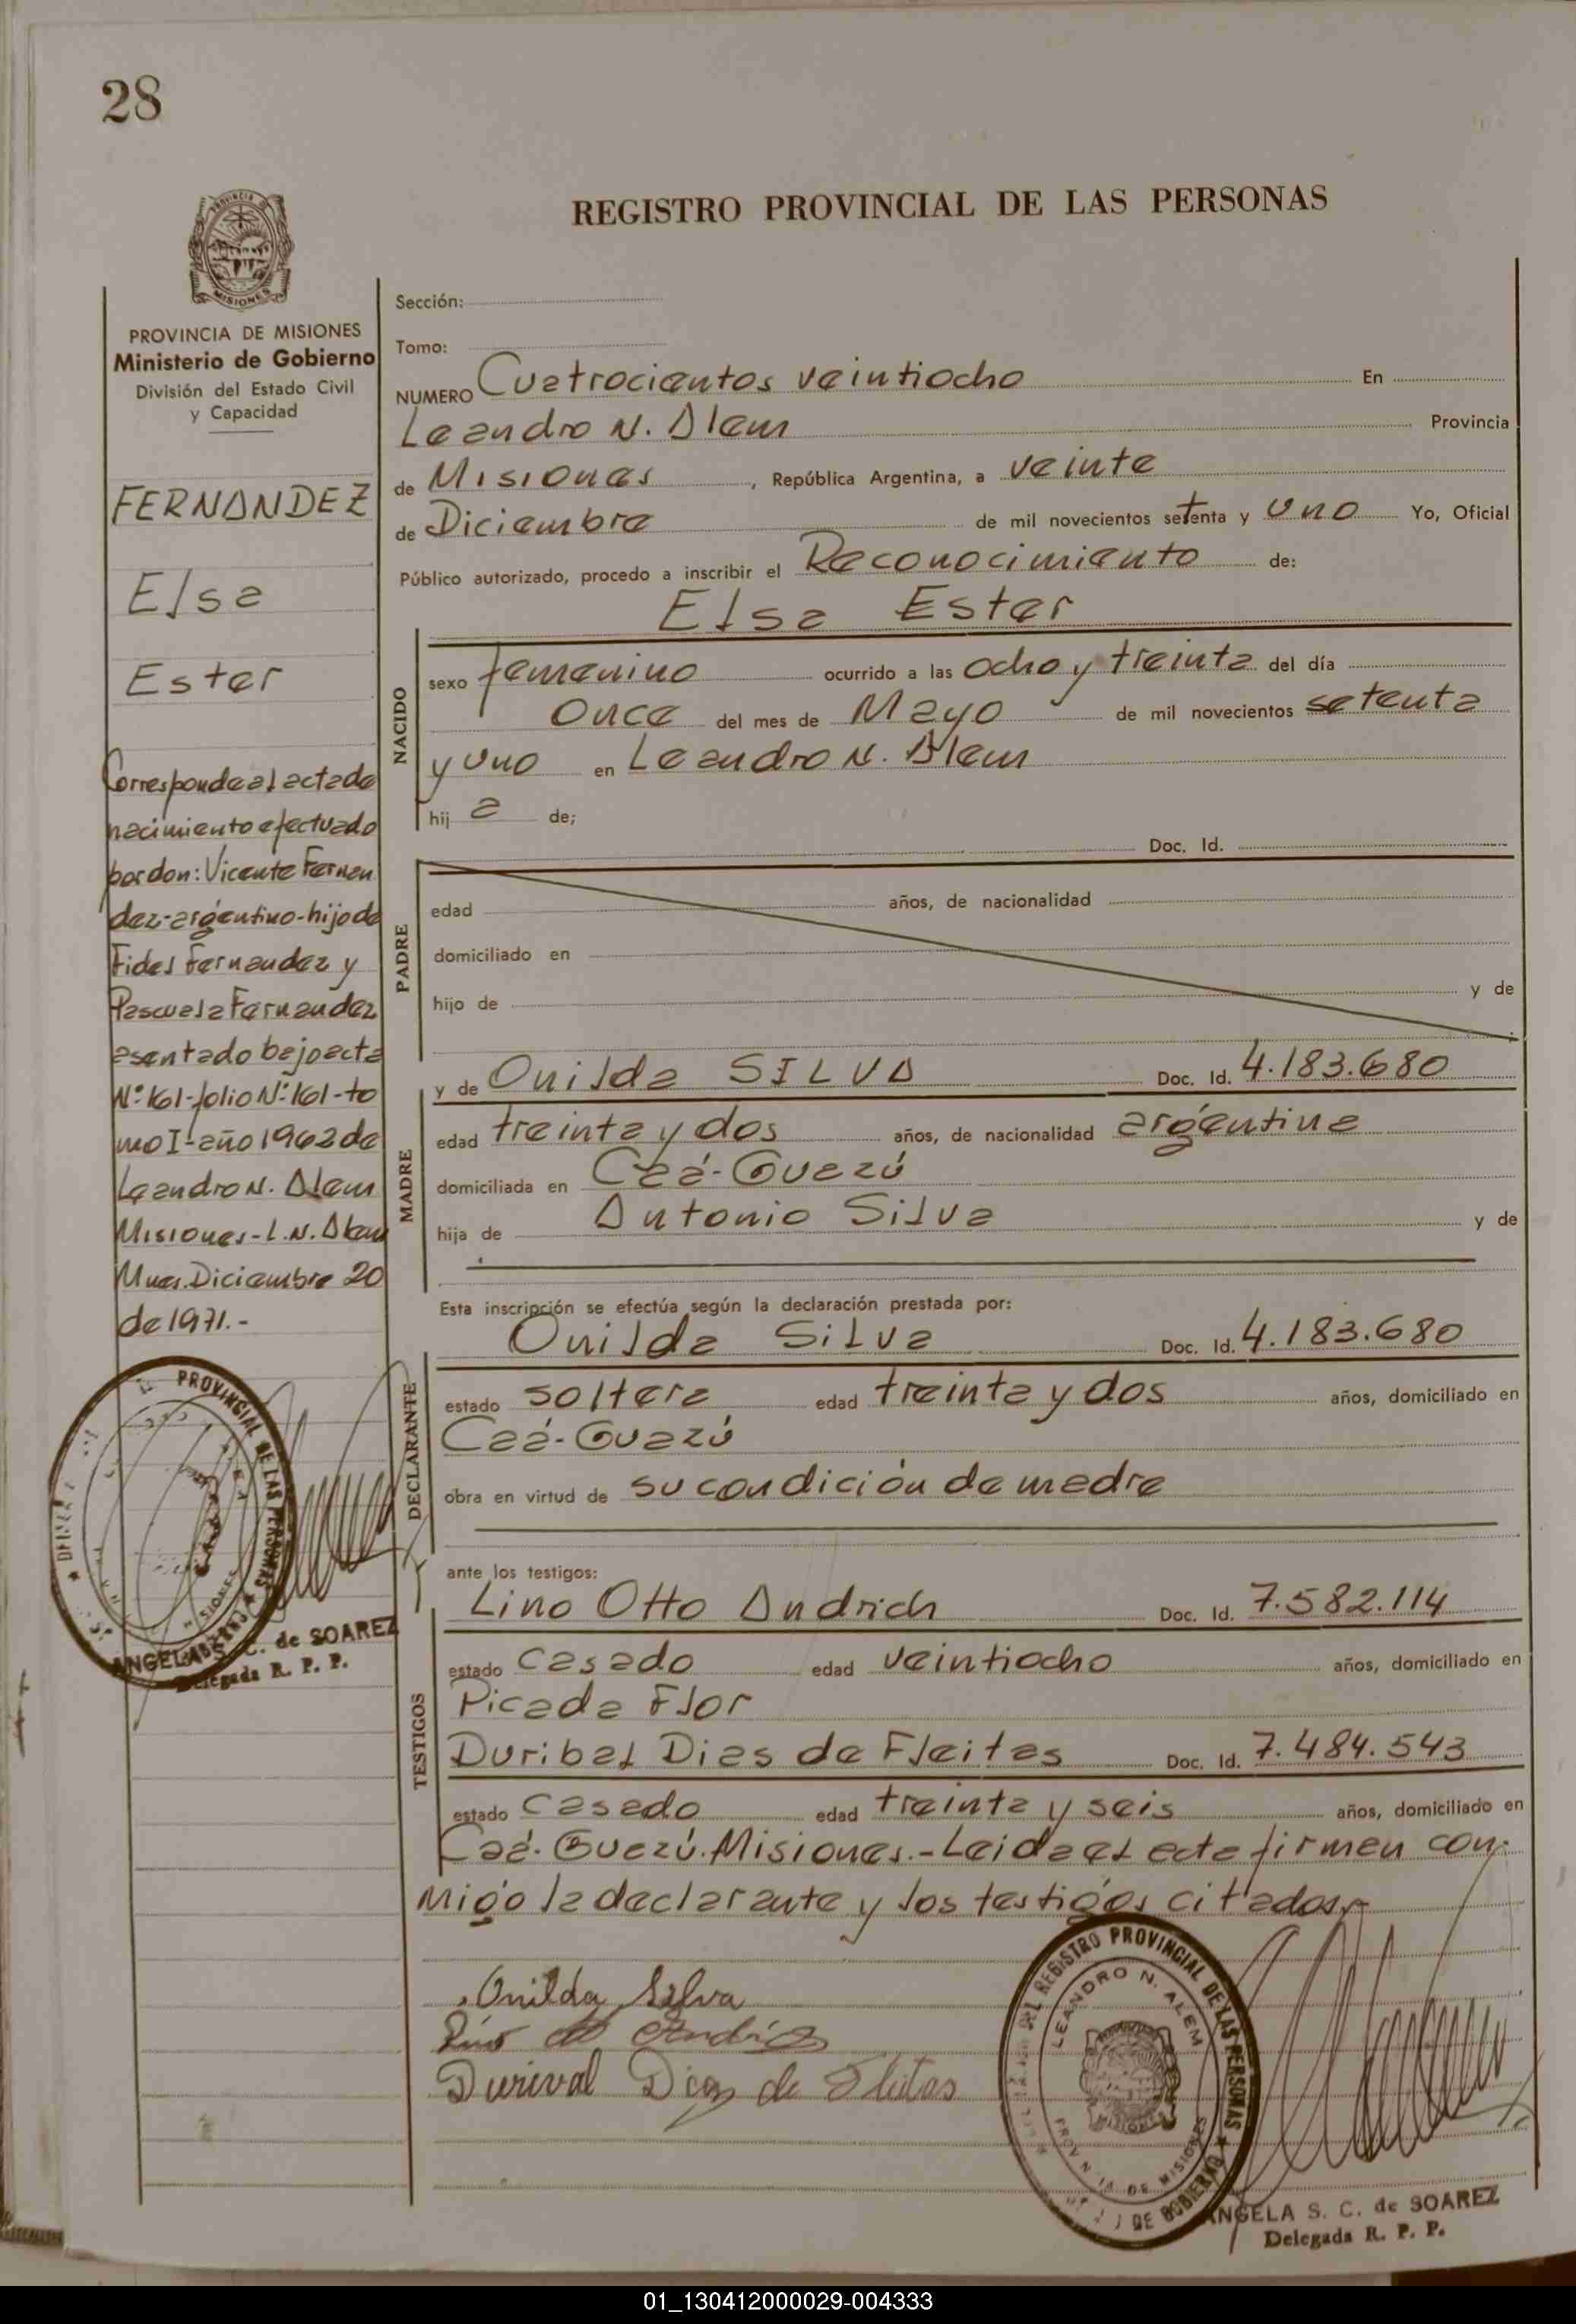 28
REGISTRO PROVINCIAL DE LAS PERSONAS
PROVINCIA DE MISIONES
Ministerio de Gobierno
División del Estado Civil
y Capacidad
FERNANDEZ
Elsa
Ester
Corresponde al acta de
nacimiento efectuado
por don: Vicente Fernan
dez-argentino-hijo de
Fidel Fernandez y
Pascuala Fernandez
asentado bajo acta
Nº:161-folio Nº:161-to
mo I-año 1962 de
Leandro N. Alem
Misiones-L.N. Alem
Mnes. Diciembre 20
de 1971.-
PROVINCIAL DE LAS PERSONAS
ANGELA S. C. de SOAREZ
Delegada R. P. P.
Sección:
Tomo:
NUMERO Cuatrocientos veintiocho En
Leandro N. Alem Provincia
de Misiones, República Argentina, a veinte
de Diciembre de mil novecientos setenta y uno Yo, Oficial
Público autorizado, procedo a inscribir el Reconocimiento de:
Elsa Ester
NACIDO
sexo femenino ocurrido a las ocho y treinta del día
once del mes de Mayo de mil novecientos setenta
y uno en Leandro N. Alem
hij a de;
Doc. Id.
PADRE
edad años, de nacionalidad
domiciliado en
hijo de y de
y de Onilda SILVA Doc. Id. 4.183.680
MADRE
edad treinta y dos años, de nacionalidad argentina
domiciliada en Caá-Guazú
hija de Antonio Silva y de
Esta inscripción se efectúa según la declaración prestada por:
Onilda Silva Doc. Id. 4.183.680
DECLARANTE
estado soltera edad treinta y dos años, domiciliado en
Caá-Guazú
obra en virtud de su condición de madre
ante los testigos:
Lino Otto Andrich Doc. Id. 7.582.114
TESTIGOS
estado casado edad veintiocho años, domiciliado en
Picada Flor
Duribal Dias de Fleitas Doc. Id. 7.484.543
estado casado edad treinta y seis años, domiciliado en
Caá-Guazú. Misiones.-Leida el acta firman con-
migo la declarante y los testigos citados.-
Onilda Silva
Durival Dias de Fleitas
DEL REGISTRO PROVINCIAL DE LAS PERSONAS
LEANDRO N. ALEM
DE MISIONES
DE GOBIERNO
ANGELA S. C. de SOAREZ
Delegada R. P. P.
01_130412000029-004333